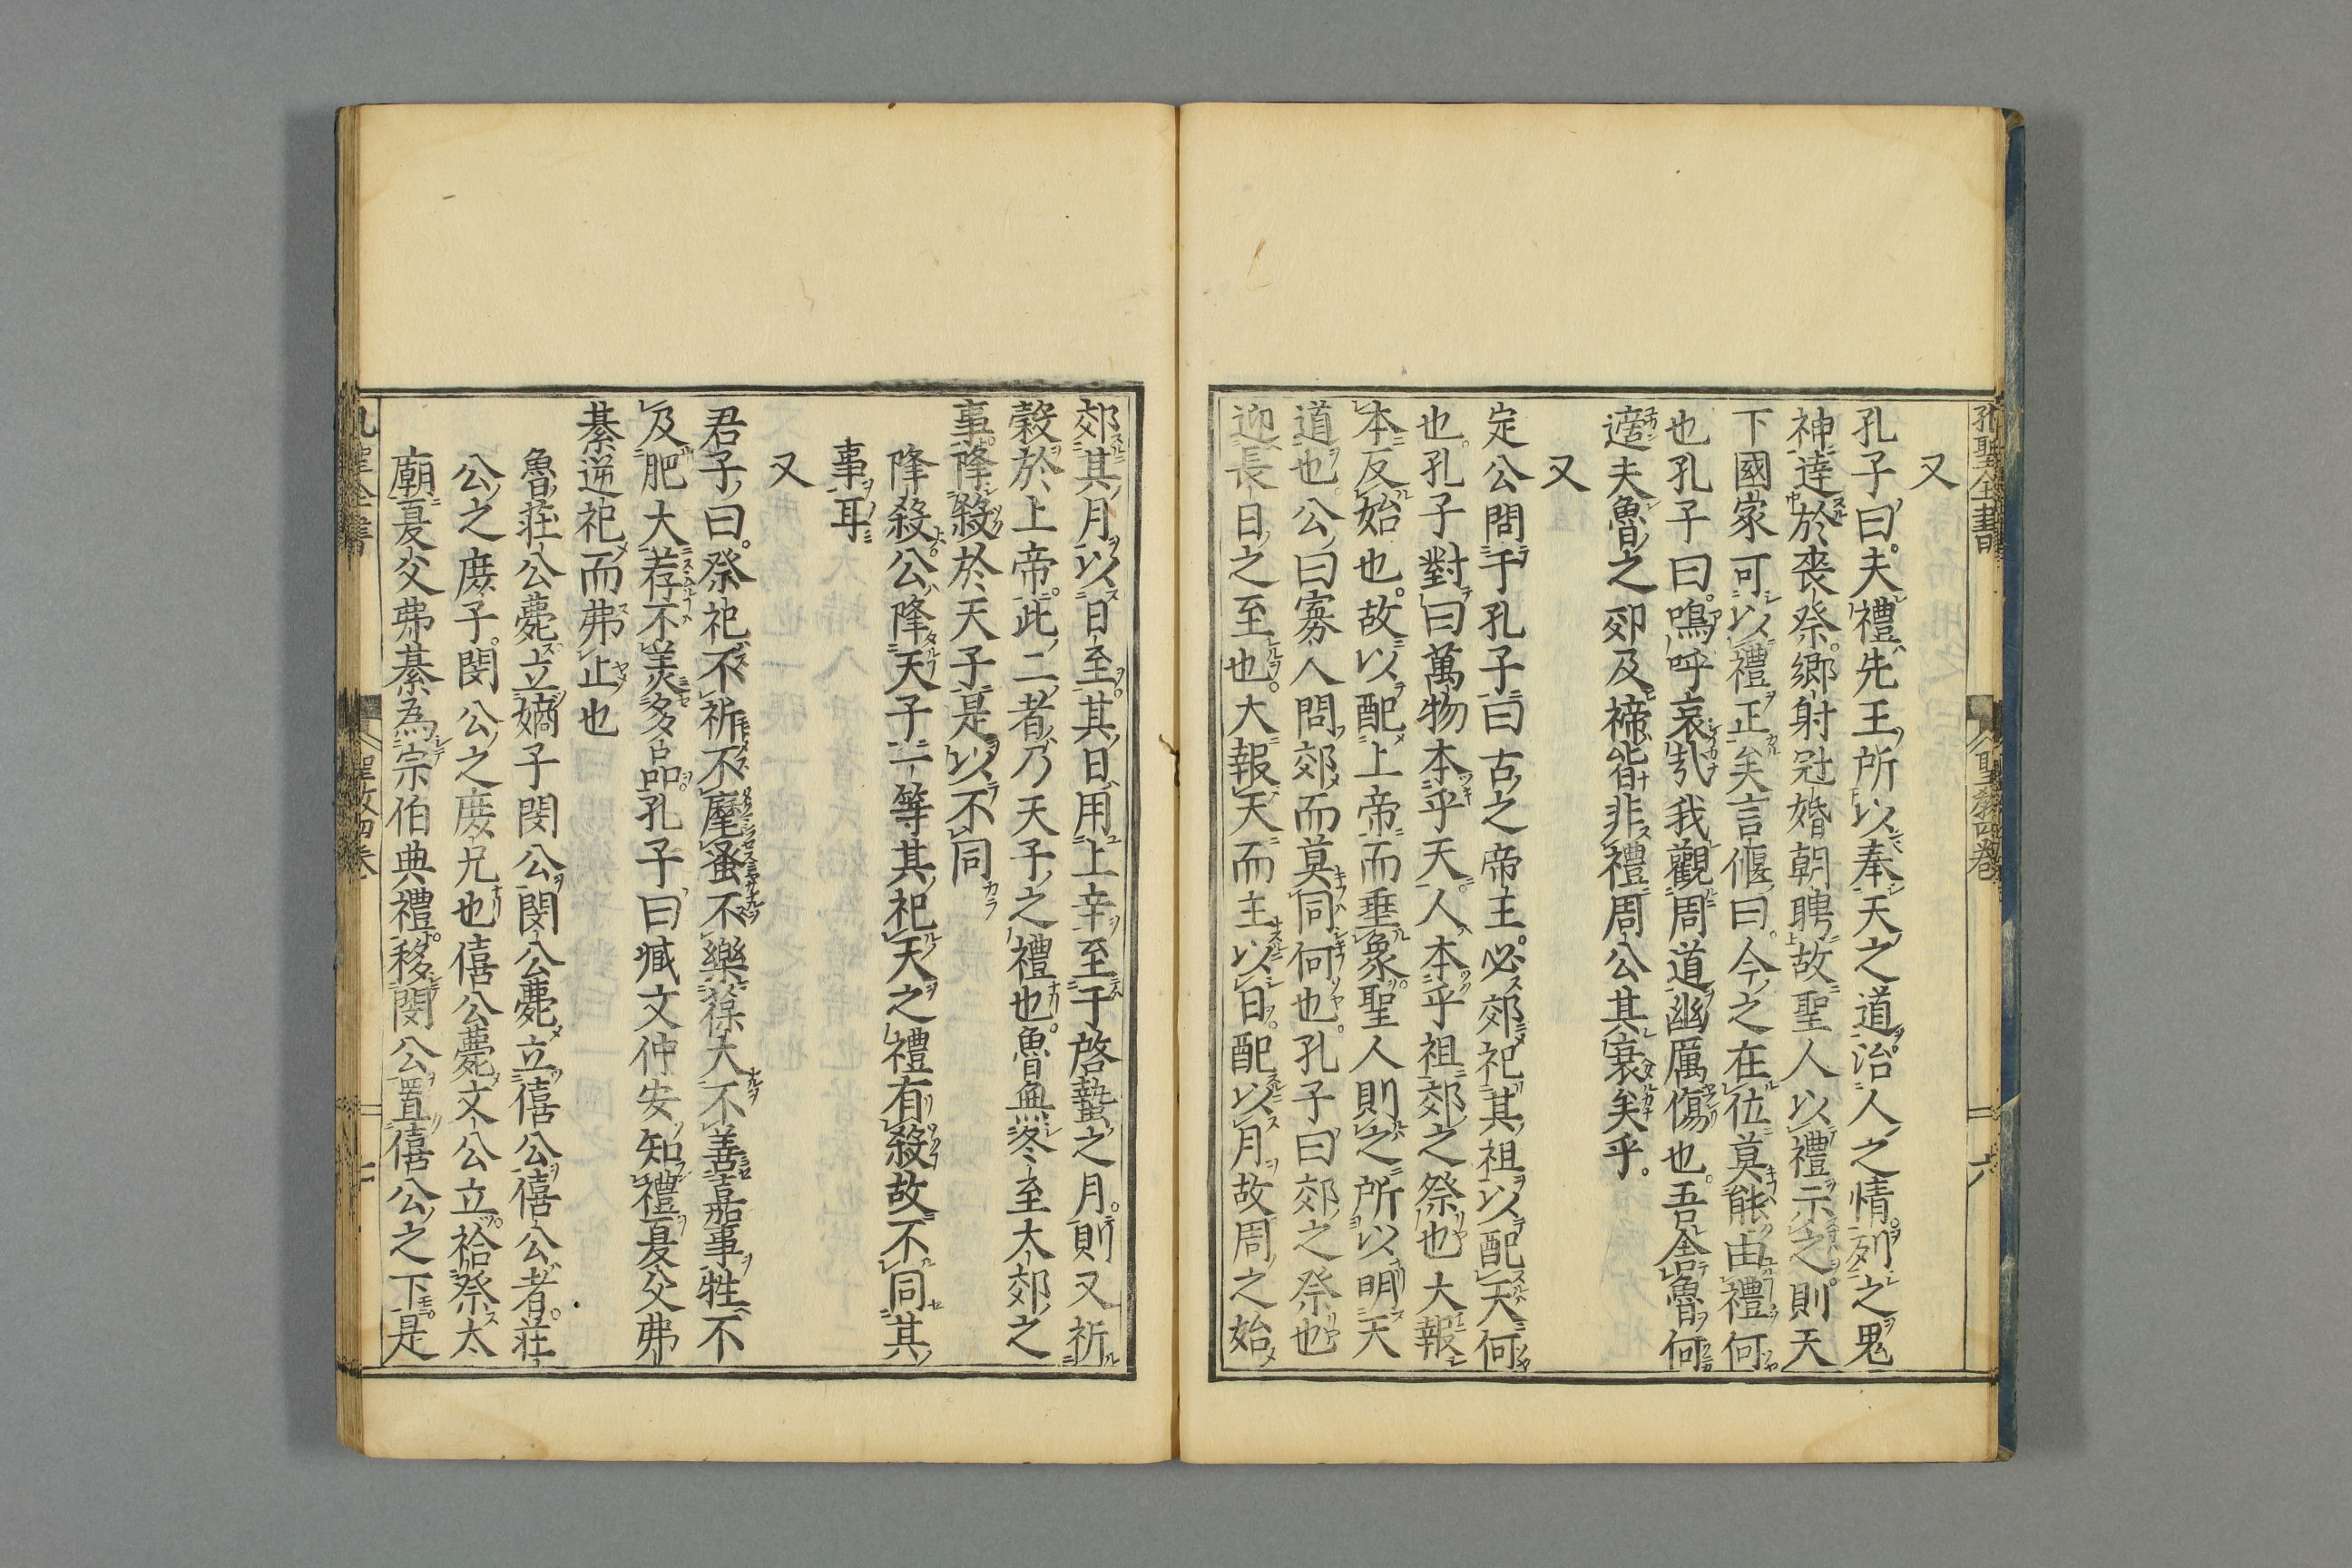 孔聖全書
聖教四卷
六
又
孔子曰夫禮先王所以奉天之道治人之情列之鬼
神達於喪祭鄉射冠婚朝聘故聖人以禮示之則天
下國家可以禮正矣言偃曰今之在位莫能由禮何
也孔子曰嗚呼哀哉我觀周道幽厲傷也吾舍魯何
適夫魯之郊及禘皆非禮周公其衰矣乎
又
定公問于孔子曰古之帝王必郊祀其祖以配天何
也孔子對曰萬物本乎天人本乎祖郊之祭也大報
本反始也故以配上帝而垂象聖人則之所以明天
道也公曰寡人問郊而莫同何也孔子曰郊之祭也
迎長日之至也大報天而主以日配以月故周之始
郊其月以日至其日用上辛至于啓蟄之月則又祈
穀於上帝此二者乃天子之禮也魯無冬至大郊之
事降殺於天子是以不同
降殺公降天子二等其祀天之禮有殺故不同其
事耳
又
君子曰祭祀不祈不麾蚤不樂葆大不善嘉事牲不
及肥大荐不美多品孔子曰臧文仲安知禮夏父弗
綦逆祀而弗止也
魯莊公薨立嫡子閔公閔公薨立僖公僖公者莊
公之庶子閔公之庶兄也僖公薨文公立祫祭太
廟夏父弗綦為宗伯典禮移閔公置僖公之下是